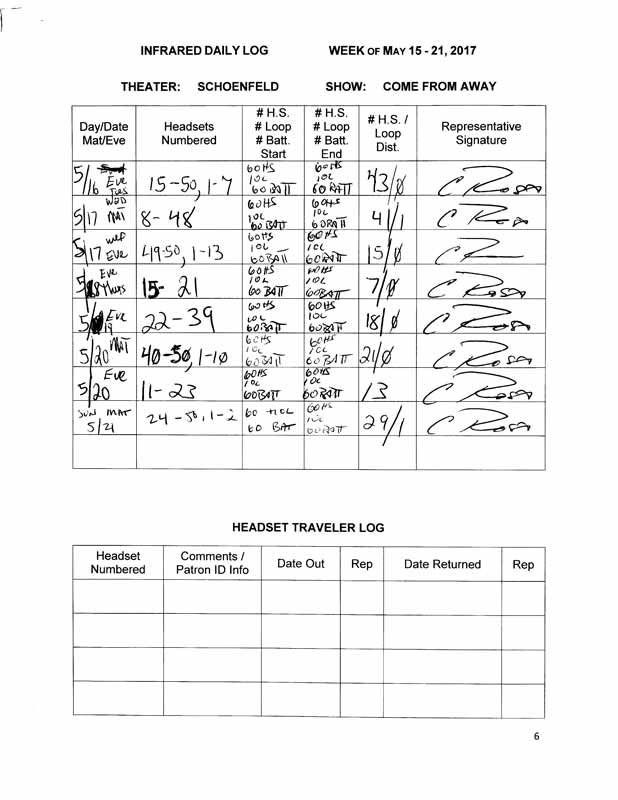 INFRARED DAILY LOG WEEK OF MAY 15 - 21, 2017
THEATER: SCHOENFELD SHOW: COME FROM AWAY
Day/Date Mat/Eve Headsets Numbered # H.S. # Loop # Batt. Start # H.S. # Loop # Batt. End # H.S. / Loop Dist. Representative Signature
5/16 Eve Tues 15-50, 1-7 60HS 10L 60BATT 60HS 10L 60BATT 43/0 C Rosa
5/17 WED MAT 8-48 60HS 10L 60BATT 60HS 10L 60BATT 41/1 C Rosa
5/17 Wed EVE 49-50, 1-13 60HS 10L 60BATT 60HS 10L 60BATT 15/0 C R
5/18 Eve Thurs 15-21 60HS 10L 60BATT 60HS 10L 60BATT 7/0 C Rosa
5/19 Eve 22-39 60HS 10L 60BATT 60HS 10L 60BATT 18/0 C Rosa
5/20 MAT 40-50, 1-10 60HS 10L 60BATT 60HS 10L 60BATT 21/0 C Rosa
5/20 Eve 11-23 60HS 10L 60BATT 60HS 10L 60BATT /13 C Rosa
SUN MAT 5/21 24-50, 1-2 60 60 BAT 60HS 60BATT 29/1 C Rosa
HEADSET TRAVELER LOG
Headset Numbered Comments / Patron ID Info Date Out Rep Date Returned Rep
6